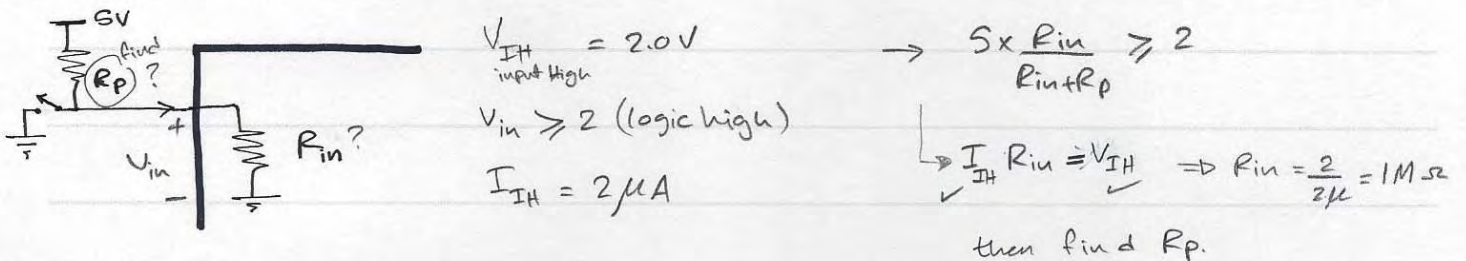 5V
find
Rp ?
+
Vin
-
Rin?
VIH = 2.0V
input High
Vin ⩾ 2 (logic high)
IIH = 2μA
→ 5x Rin / Rin+Rp ⩾ 2
IIH Rin = VIH ⇒ Rin = 2 / 2μ = 1MΩ
✓ ✓
then find Rp.